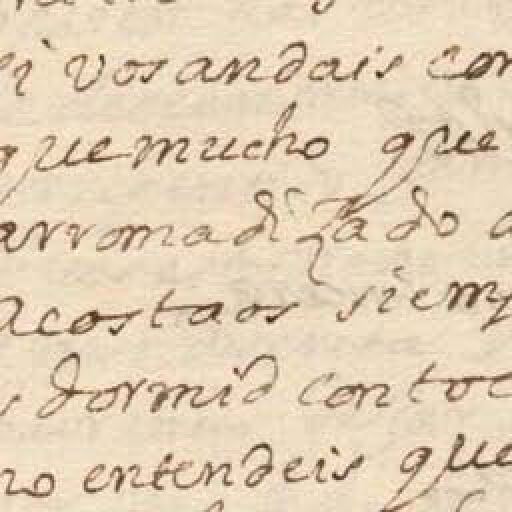 si vos andais con
que mucho que
arromadizado a
acostaos siemp
dormid con toc
no entendeis que